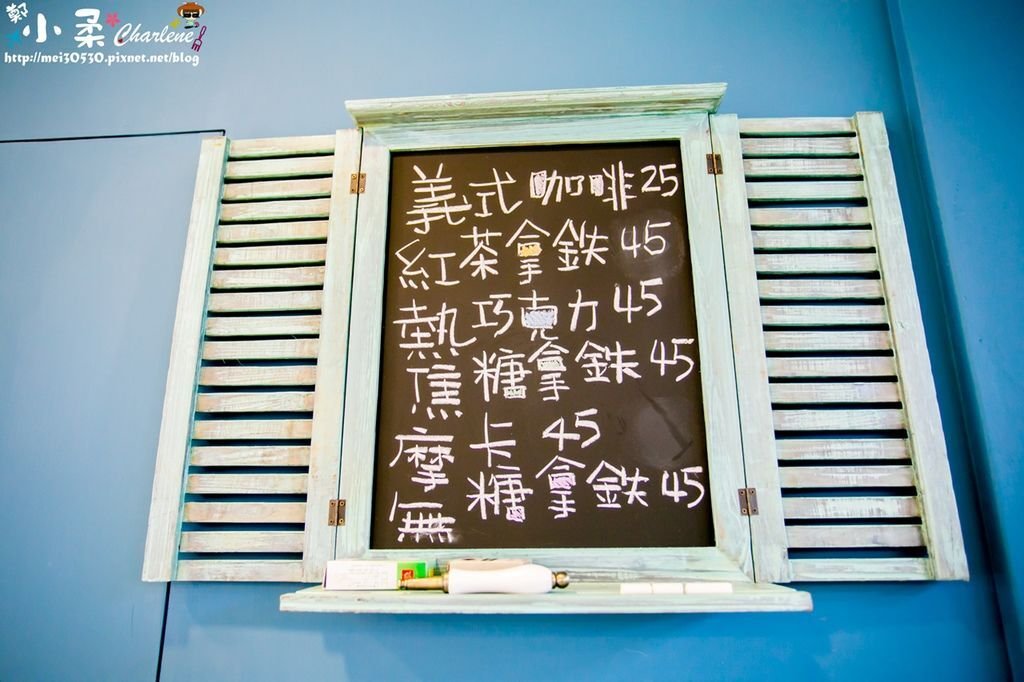 鄭小柔 Charlene
http://mei30530.pixnet.net/blog
義式咖啡25
紅茶拿鉄45
熱巧克力45
焦糖拿鉄45
摩卡45
無糖拿鉄45